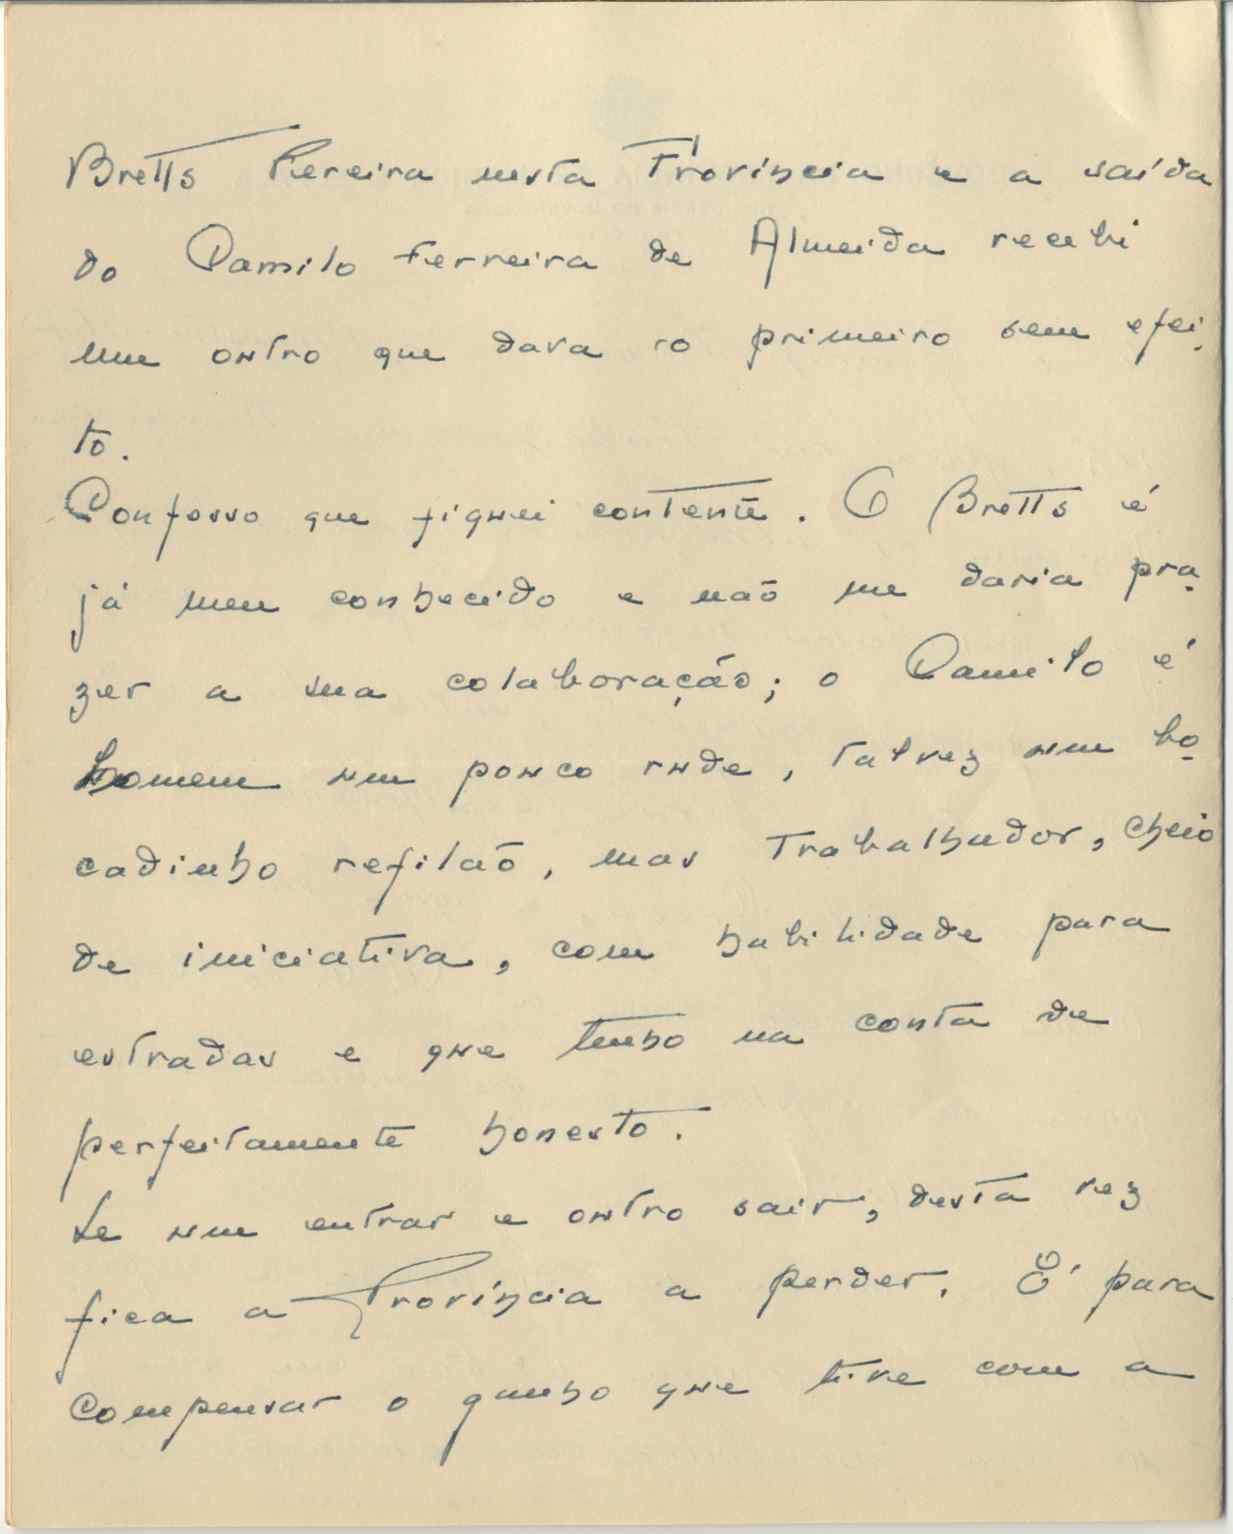 Bretts Pereira nesta Província e a saída
do Camilo Ferreira de Almeida recebi
um outro que dava o primeiro sem efei-
to.
Confesso que fiquei contente. O Bretts é
já meu conhecido e não me daria pra-
zer a sua colaboração; o Camilo é
homem um pouco rude, talvez um bo-
cadinho refilão, mas trabalhador, cheio
de iniciativa, com habilidade para
estradas e que tenho na conta de
perfeitamente honesto.
Se um entrar e outro sair, desta vez
fica a Província a perder. É para
compensar o ganho que tive com a